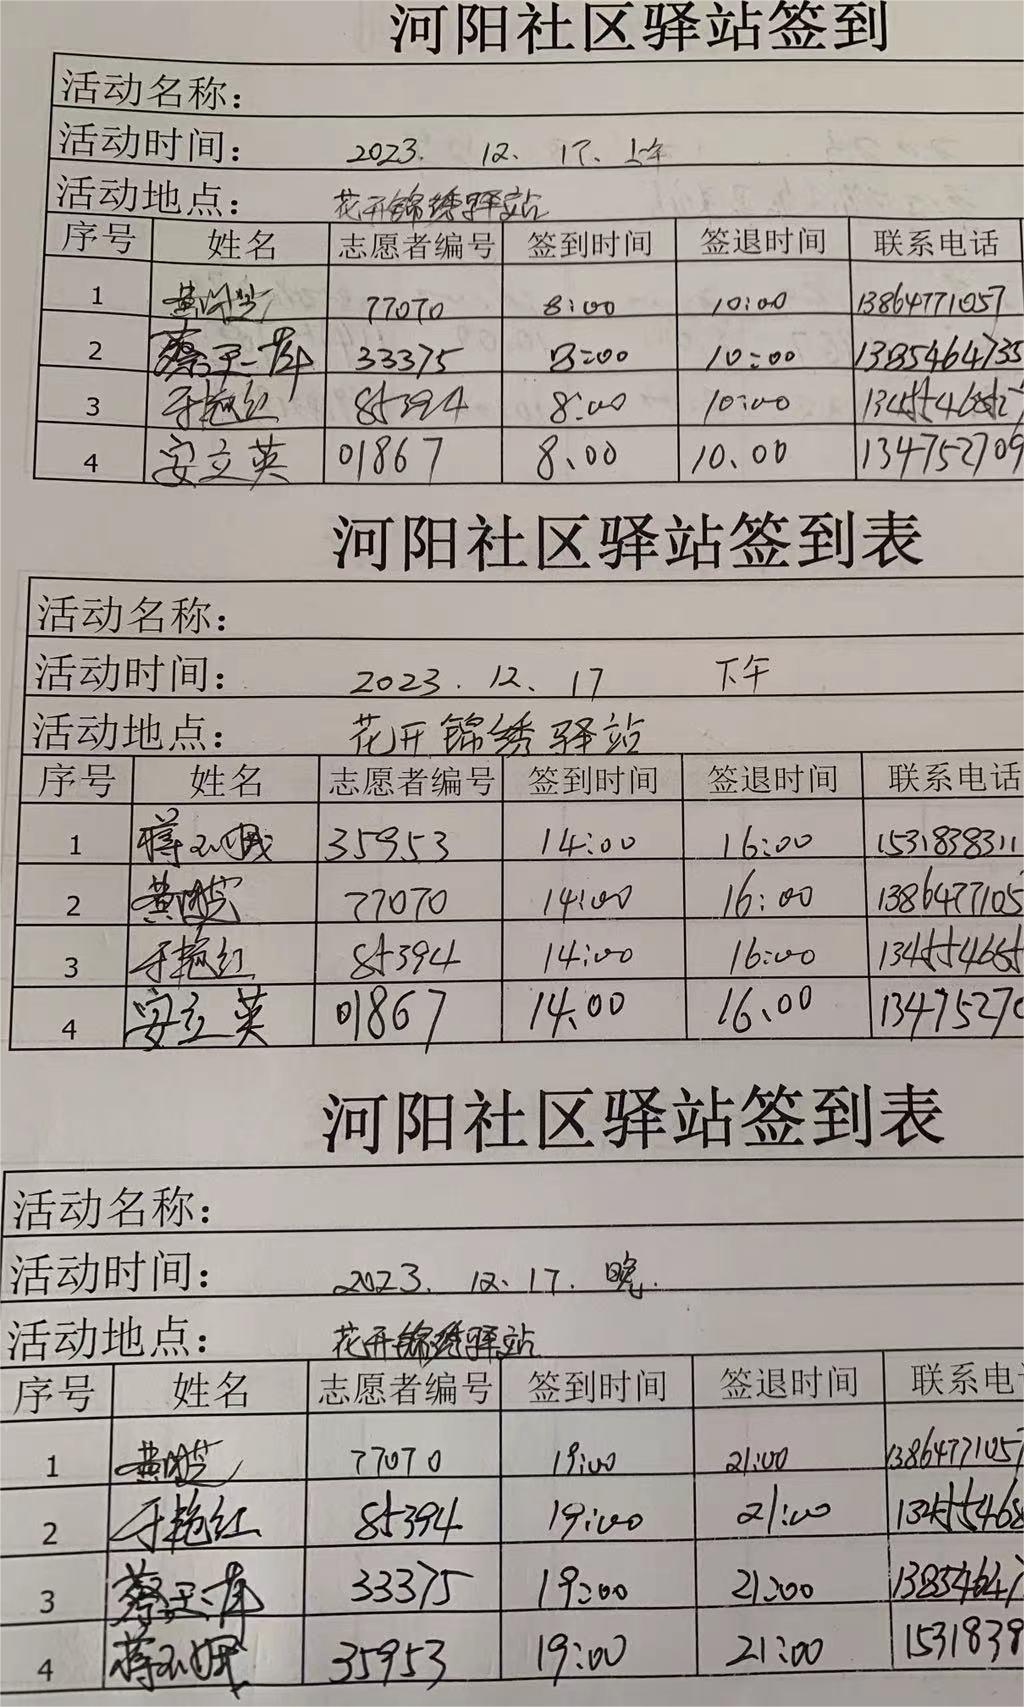 河阳社区驿站签到
活动名称:
活动时间: 2023. 12. 17. 上午
活动地点: 花开锦绣驿站
序号 姓名 志愿者编号 签到时间 签退时间 联系电话
1 77070 8:00 10:00 13864771057
2 33375 8:00 10:00 1385464735
3 于艳红 85394 8:00 10:00
4 安立英 01867 8.00 10.00 134752709
河阳社区驿站签到表
活动名称:
活动时间: 2023. 12. 17 下午
活动地点: 花开锦绣驿站
序号 姓名 志愿者编号 签到时间 签退时间 联系电话
1 35953 14:00 16:00 1531838311
2 77070 14:00 16:00 1386477105
3 于艳红 85394 14:00 16:00
4 安立英 01867 14.00 16.00 13475270
河阳社区驿站签到表
活动名称:
活动时间: 2023. 12. 17. 晚.
活动地点: 花开锦绣驿站
序号 姓名 志愿者编号 签到时间 签退时间 联系电
1 77070 19:00 21:00 13864771057
2 于艳红 85394 19:00 21:00
3 33375 19:00 21:00 13854647
4 35953 19:00 21:00 1531839